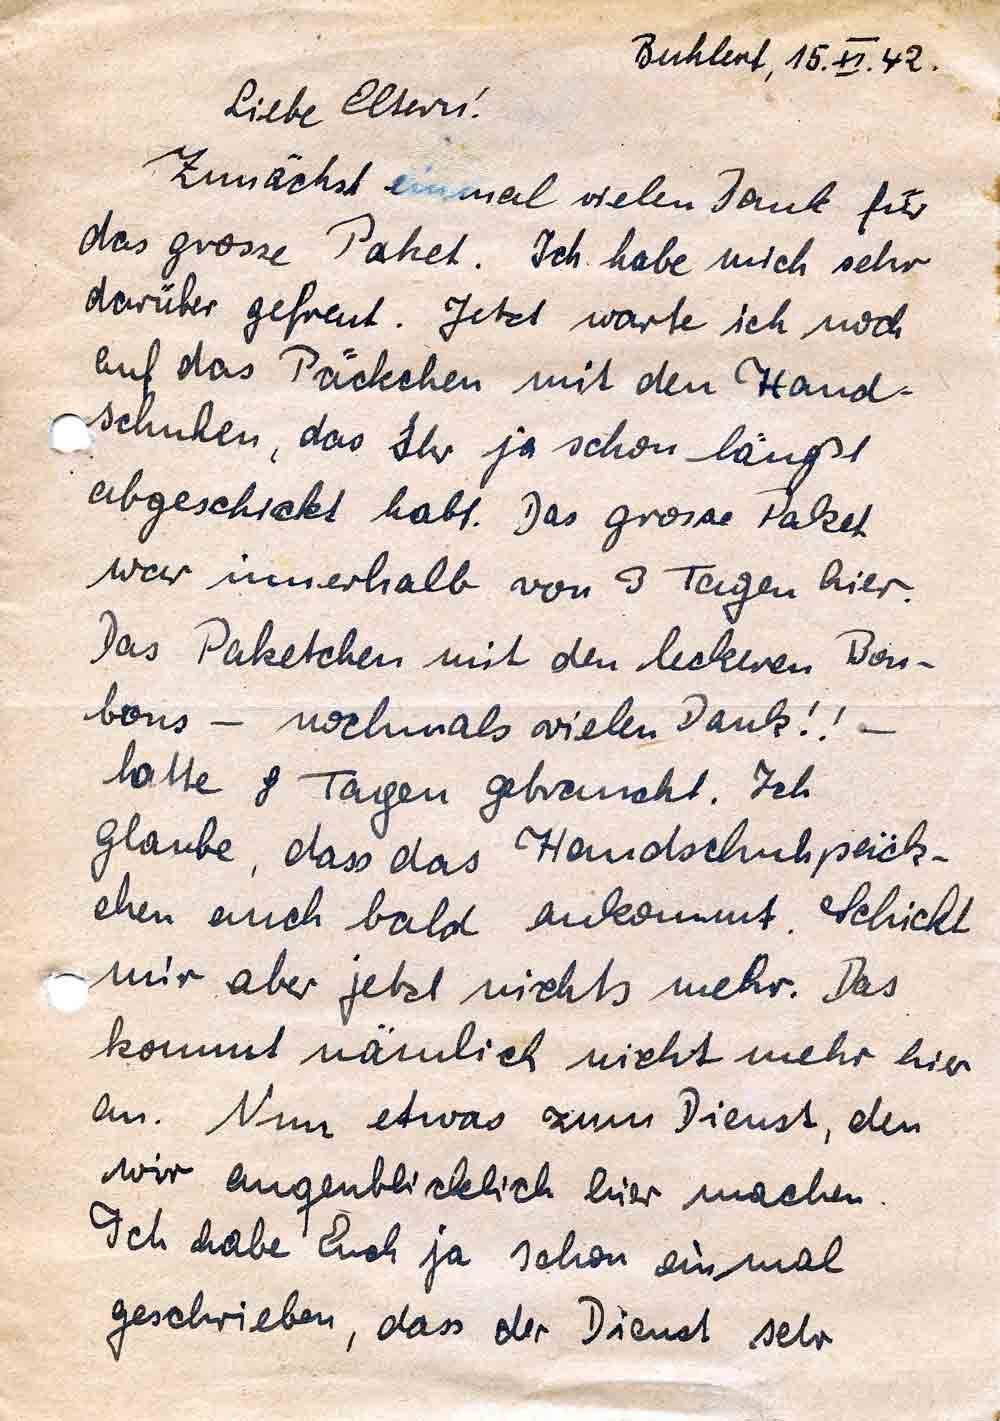 Buhlert, 15.XI.42.
Liebe Eltern!
Zunächst einmal vielen Dank für
das grosse Paket. Ich habe mich sehr
darüber gefreut. Jetzt warte ich noch
auf das Päckchen mit den Hand-
schuhen, das Ihr ja schon längst
abgeschickt habt. Das grosse Paket
war innerhalb von 3 Tagen hier.
Das Paketchen mit den leckeren Bon-
bons – nochmals vielen Dank!! –
hatte 8 Tagen gebraucht. Ich
glaube, dass das Handschuhpäck-
chen auch bald ankommt. Schickt
mir aber jetzt nichts mehr. Das
kommt nämlich nicht mehr hier
an. Nun etwas zum Dienst, den
wir augenblicklich hier machen.
Ich habe Euch ja schon einmal
geschrieben, dass der Dienst sehr